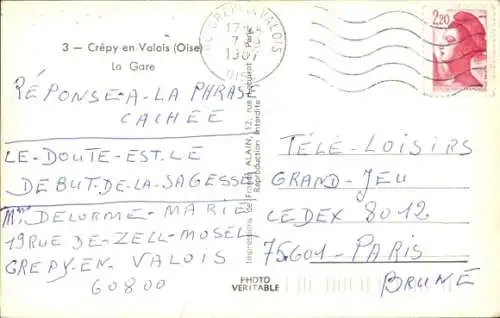 3 — Crépy-en-Valois (Oise)
La Gare
RÉPONSE-A-LA PHRASE
CACHÉE
LE-DOUTE-EST-LE
DEBUT-DE-LA-SAGESSE
Mme DELORME-MARIE
19 RUE DE-ZELL-MOSEL
CREPY-EN-VALOIS
60800
Impressions de France ALAIN, 12, rue
Paris
Reproduction interdite
CREPY EN VALOIS
17
7
1987
OISE
2,20
TÉLÉ-LOISIRS
GRAND-JEU
CEDEX 8012
75601-PARIS
BRUNE
PHOTO
VÉRITABLE